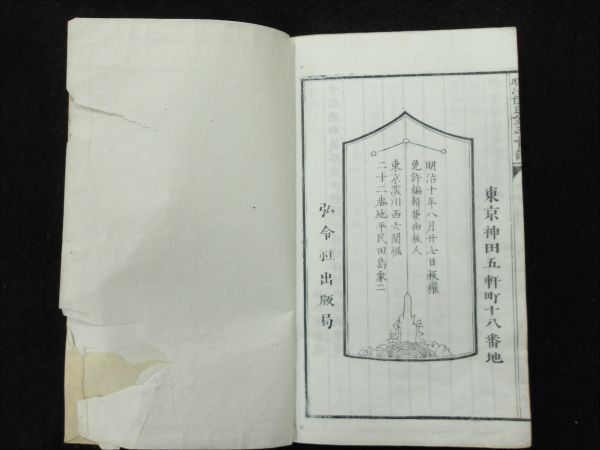 東京神田五軒町十八番地
明治十年八月廿七日板權
免許編輯兼出板人
東京深川西六間堀
二十二番地平民田島象二
弘令社出版局